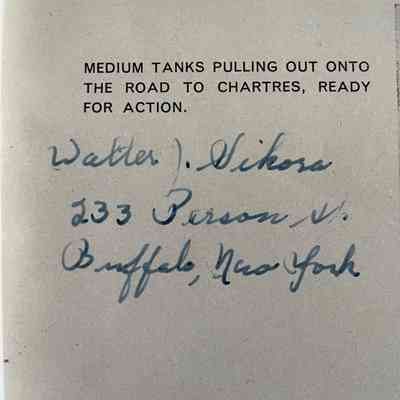 MEDIUM TANKS PULLING OUT ONTO
THE ROAD TO CHARTRES, READY
FOR ACTION.
Walter J. Sikora
233 Person St.
Buffalo, New York